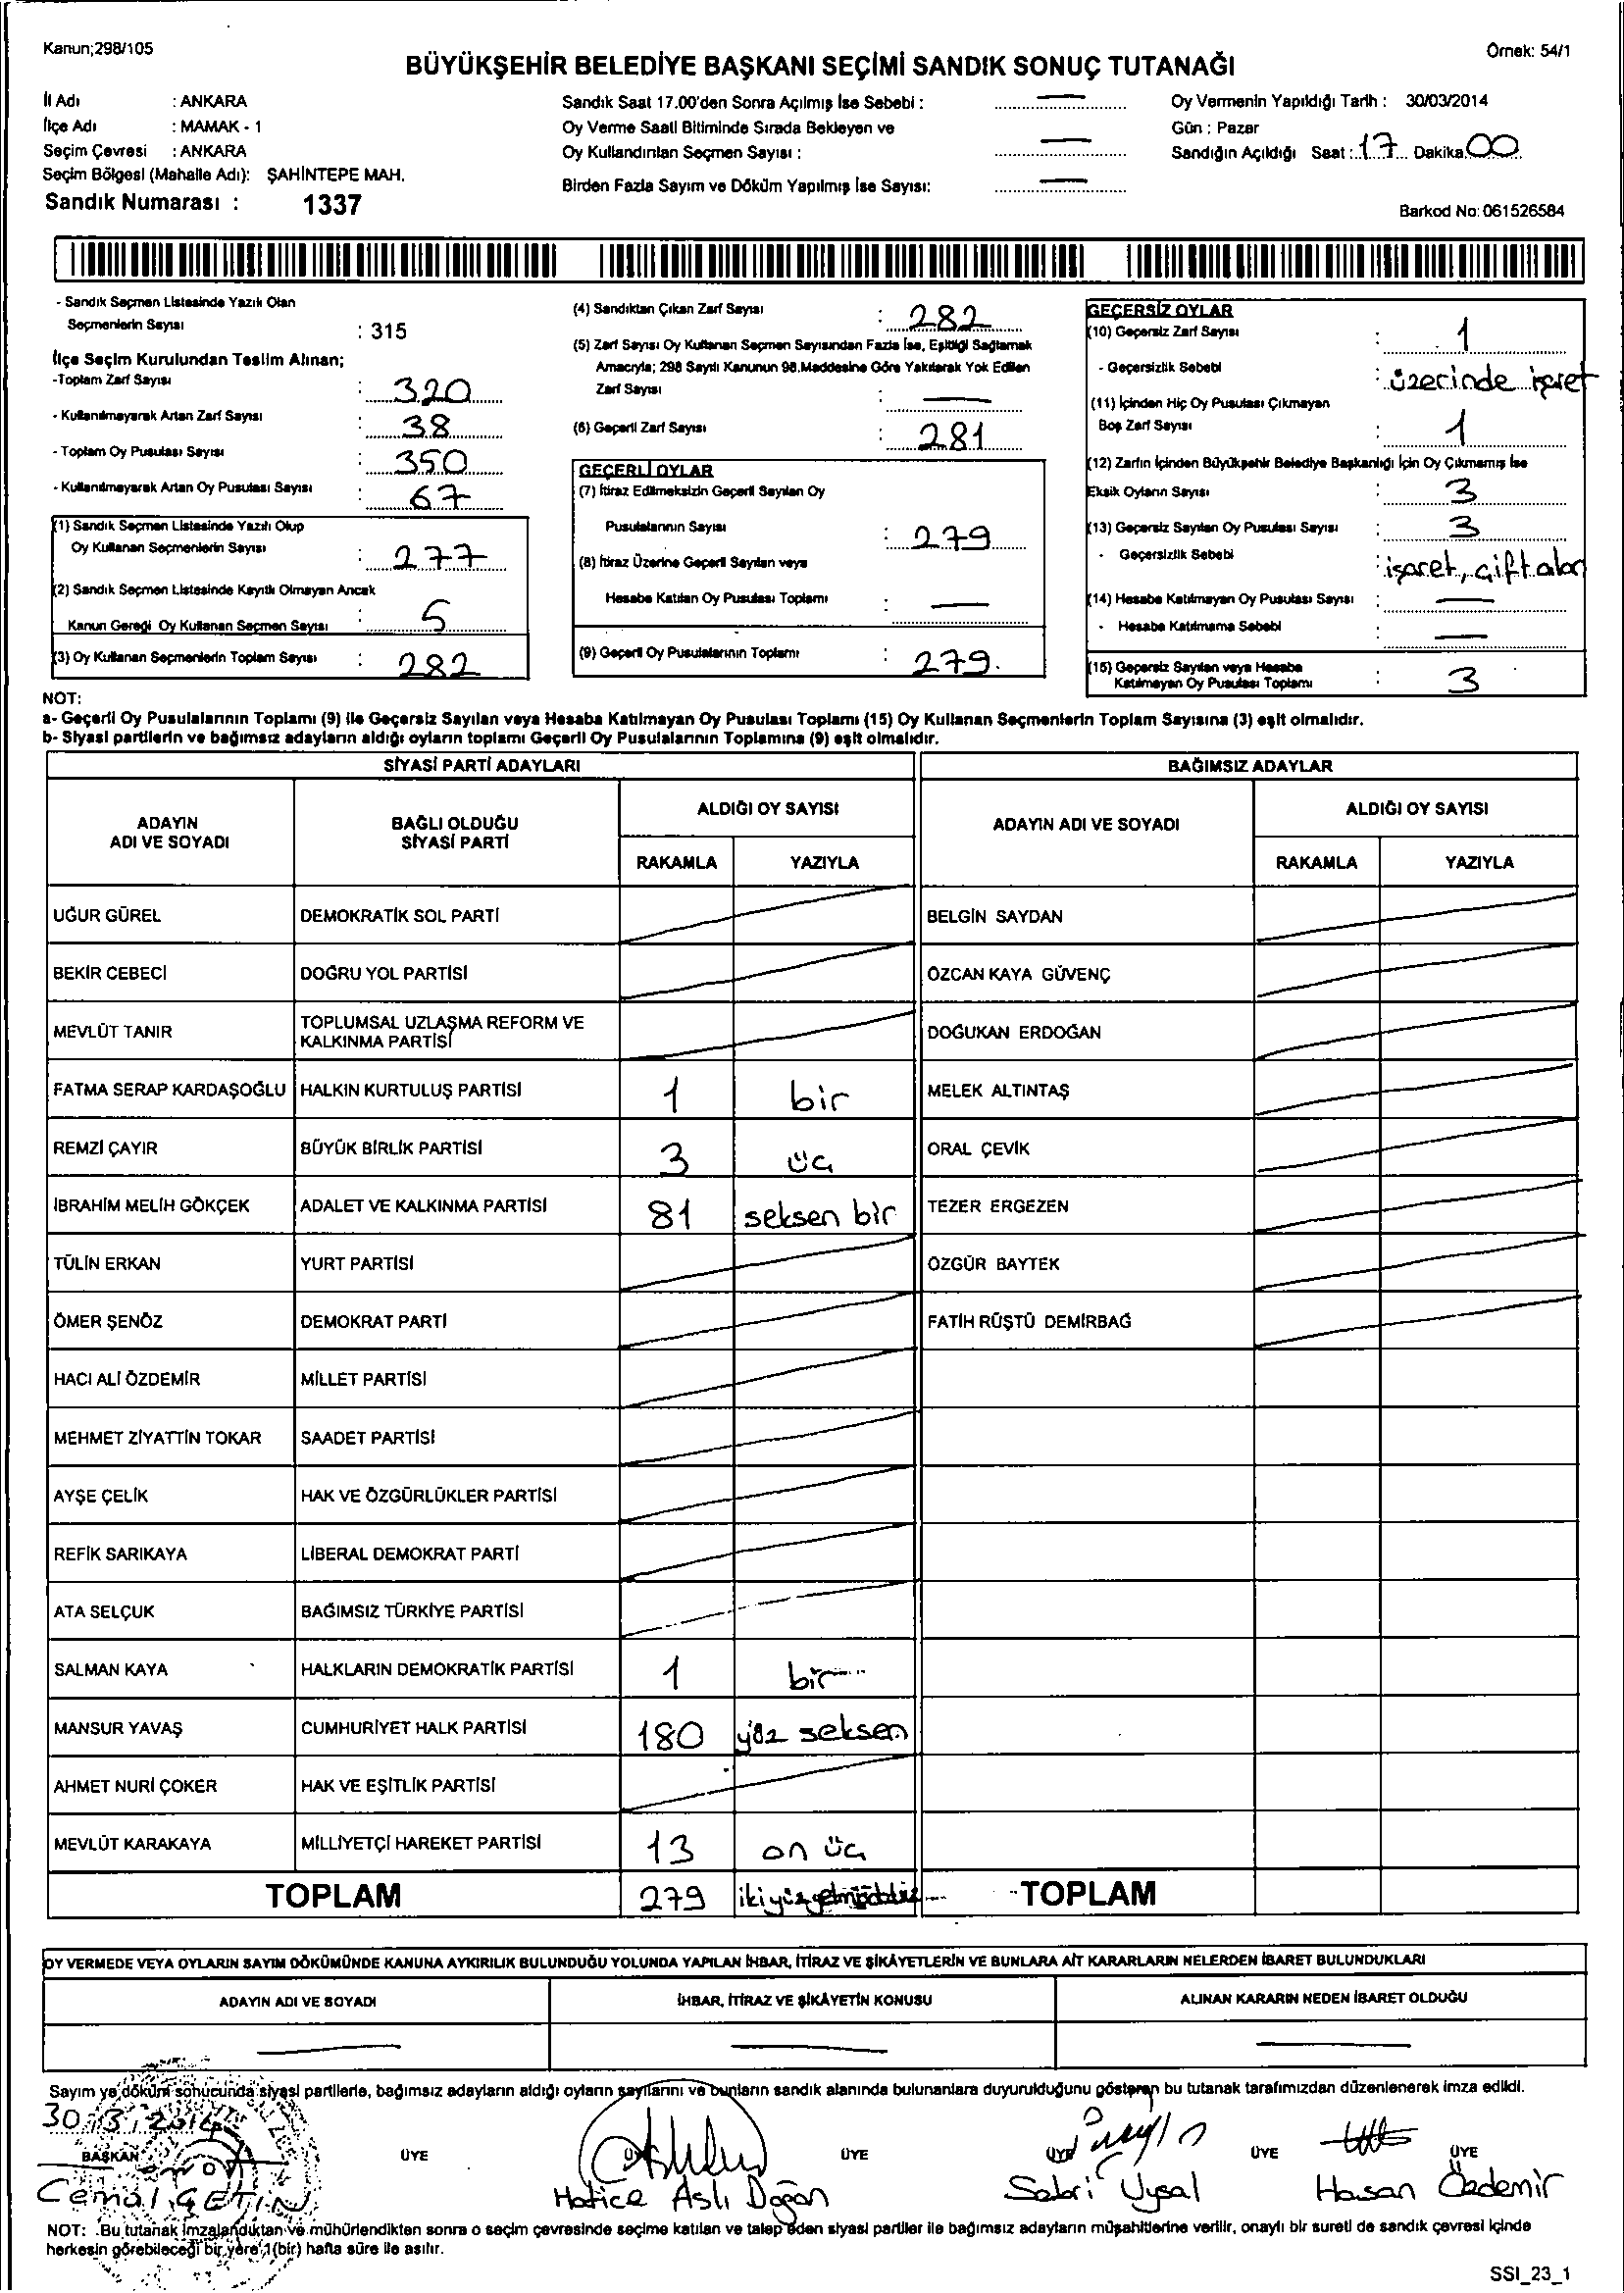 Kanun;298/105
Örnek: 54/1
BÜYÜKŞEHİR BELEDİYE BAŞKANI SEÇİMİ SANDIK SONUÇ TUTANAĞI
İl Adı : ANKARA
İlçe Adı : MAMAK - 1
Seçim Çevresi : ANKARA
Seçim Bölgesi (Mahalle Adı): ŞAHİNTEPE MAH.
Sandık Numarası : 1337
Sandık Saat 17.00'den Sonra Açılmış İse Sebebi : —
Oy Verme Saati Bitiminde Sırada Bekleyen ve
Oy Kullandırılan Seçmen Sayısı : —
Birden Fazla Sayım ve Döküm Yapılmış İse Sayısı: —
Oy Vermenin Yapıldığı Tarih : 30/03/2014
Gün : Pazar
Sandığın Açıldığı Saat : 17 Dakika 00
Barkod No: 061526584
- Sandık Seçmen Listesinde Yazılı Olan
Seçmenlerin Sayısı : 315
İlçe Seçim Kurulundan Teslim Alınan;
-Toplam Zarf Sayısı : 320
- Kullanılmayarak Artan Zarf Sayısı : 38
- Toplam Oy Pusulası Sayısı : 350
- Kullanılmayarak Artan Oy Pusulası Sayısı : 67
(1) Sandık Seçmen Listesinde Yazılı Olup
Oy Kullanan Seçmenlerin Sayısı : 277
(2) Sandık Seçmen Listesinde Kayıtlı Olmayan Ancak
Kanun Gereği Oy Kullanan Seçmen Sayısı : 5
(3) Oy Kullanan Seçmenlerin Toplam Sayısı : 282
(4) Sandıktan Çıkan Zarf Sayısı : 282
(5) Zarf Sayısı Oy Kullanan Seçmen Sayısından Fazla İse, Eşitliği Sağlamak
Amacıyla; 298 Sayılı Kanunun 98.Maddesine Göre Yakılarak Yok Edilen
Zarf Sayısı : —
(6) Geçerli Zarf Sayısı : 281
GEÇERLİ OYLAR
(7) İtiraz Edilmeksizin Geçerli Sayılan Oy
Pusulalarının Sayısı : 279
(8) İtiraz Üzerine Geçerli Sayılan veya
Hesaba Katılan Oy Pusulası Toplamı : —
(9) Geçerli Oy Pusulalarının Toplamı : 279.
GEÇERSİZ OYLAR
(10) Geçersiz Zarf Sayısı : 1
- Geçersizlik Sebebi : üzerinde işaret
(11) İçinden Hiç Oy Pusulası Çıkmayan
Boş Zarf Sayısı : 1
(12) Zarfın İçinden Büyükşehir Belediye Başkanlığı İçin Oy Çıkmamış İse
Eksik Oyların Sayısı : 3
(13) Geçersiz Sayılan Oy Pusulası Sayısı : 3
- Geçersizlik Sebebi : işaret, çift alan
(14) Hesaba Katılmayan Oy Pusulası Sayısı : —
- Hesaba Katılmama Sebebi : —
(15) Geçersiz Sayılan veya Hesaba
Katılmayan Oy Pusulası Toplamı : 3
NOT:
a- Geçerli Oy Pusulalarının Toplamı (9) ile Geçersiz Sayılan veya Hesaba Katılmayan Oy Pusulası Toplamı (15) Oy Kullanan Seçmenlerin Toplam Sayısına (3) eşit olmalıdır.
b- Siyasi partilerin ve bağımsız adayların aldığı oyların toplamı Geçerli Oy Pusulalarının Toplamına (9) eşit olmalıdır.
SİYASİ PARTİ ADAYLARI BAĞIMSIZ ADAYLAR
ADAYIN ADI VE SOYADI BAĞLI OLDUĞU SİYASİ PARTİ ALDIĞI OY SAYISI ADAYIN ADI VE SOYADI ALDIĞI OY SAYISI
RAKAMLA YAZIYLA RAKAMLA YAZIYLA
UĞUR GÜREL DEMOKRATİK SOL PARTİ BELGİN SAYDAN
BEKİR CEBECİ DOĞRU YOL PARTİSİ ÖZCAN KAYA GÜVENÇ
MEVLÜT TANIR TOPLUMSAL UZLAŞMA REFORM VE KALKINMA PARTİSİ DOĞUKAN ERDOĞAN
FATMA SERAP KARDAŞOĞLU HALKIN KURTULUŞ PARTİSİ 1 bir MELEK ALTINTAŞ
REMZİ ÇAYIR BÜYÜK BİRLİK PARTİSİ 3 üç ORAL ÇEVİK
İBRAHİM MELİH GÖKÇEK ADALET VE KALKINMA PARTİSİ 81 seksen bir TEZER ERGEZEN
TÜLİN ERKAN YURT PARTİSİ ÖZGÜR BAYTEK
ÖMER ŞENÖZ DEMOKRAT PARTİ FATİH RÜŞTÜ DEMİRBAĞ
HACI ALİ ÖZDEMİR MİLLET PARTİSİ
MEHMET ZİYATTİN TOKAR SAADET PARTİSİ
AYŞE ÇELİK HAK VE ÖZGÜRLÜKLER PARTİSİ
REFİK SARIKAYA LİBERAL DEMOKRAT PARTİ
ATA SELÇUK BAĞIMSIZ TÜRKİYE PARTİSİ
SALMAN KAYA HALKLARIN DEMOKRATİK PARTİSİ 1 bir
MANSUR YAVAŞ CUMHURİYET HALK PARTİSİ 180 yüz seksen
AHMET NURİ ÇOKER HAK VE EŞİTLİK PARTİSİ
MEVLÜT KARAKAYA MİLLİYETÇİ HAREKET PARTİSİ 13 on üç
TOPLAM 279 iki yüz TOPLAM
OY VERMEDE VEYA OYLARIN SAYIM DÖKÜMÜNDE KANUNA AYKIRILIK BULUNDUĞU YOLUNDA YAPILAN İHBAR, İTİRAZ VE ŞİKÂYETLERİN VE BUNLARA AİT KARARLARIN NELERDEN İBARET BULUNDUKLARI
ADAYIN ADI VE SOYADI İHBAR, İTİRAZ VE ŞİKÂYETİN KONUSU ALINAN KARARIN NEDEN İBARET OLDUĞU
— — —
Sayım ve döküm sonucunda siyasi partilerle, bağımsız adayların aldığı oyların sayılarını ve bunların sandık alanında bulunanlara duyurulduğunu gösteren bu tutanak tarafımızdan düzenlenerek imza edildi.
30/3/2014
BAŞKAN ÜYE ÜYE ÜYE ÜYE ÜYE
Cemal ÇETİN Hatice Aslı Doğan Sabri Uysal Hasan Özdemir
NOT: Bu tutanak imzalandıktan ve mühürlendikten sonra o seçim çevresinde seçime katılan ve talep eden siyasi partiler ile bağımsız adayların müşahitlerine verilir, onaylı bir sureti de sandık çevresi içinde
herkesin görebileceği bir yere 1(bir) hafta süre ile asılır.
SSI_23_1